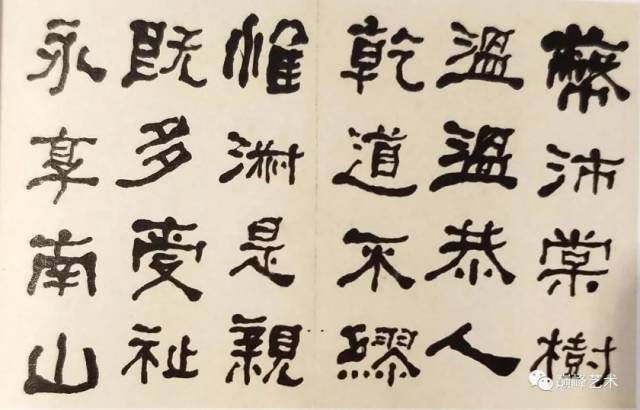 蔽沛棠樹
溫溫恭人
乾道不繆
惟淑是親
既多受祉
永享南山
巅峰艺术